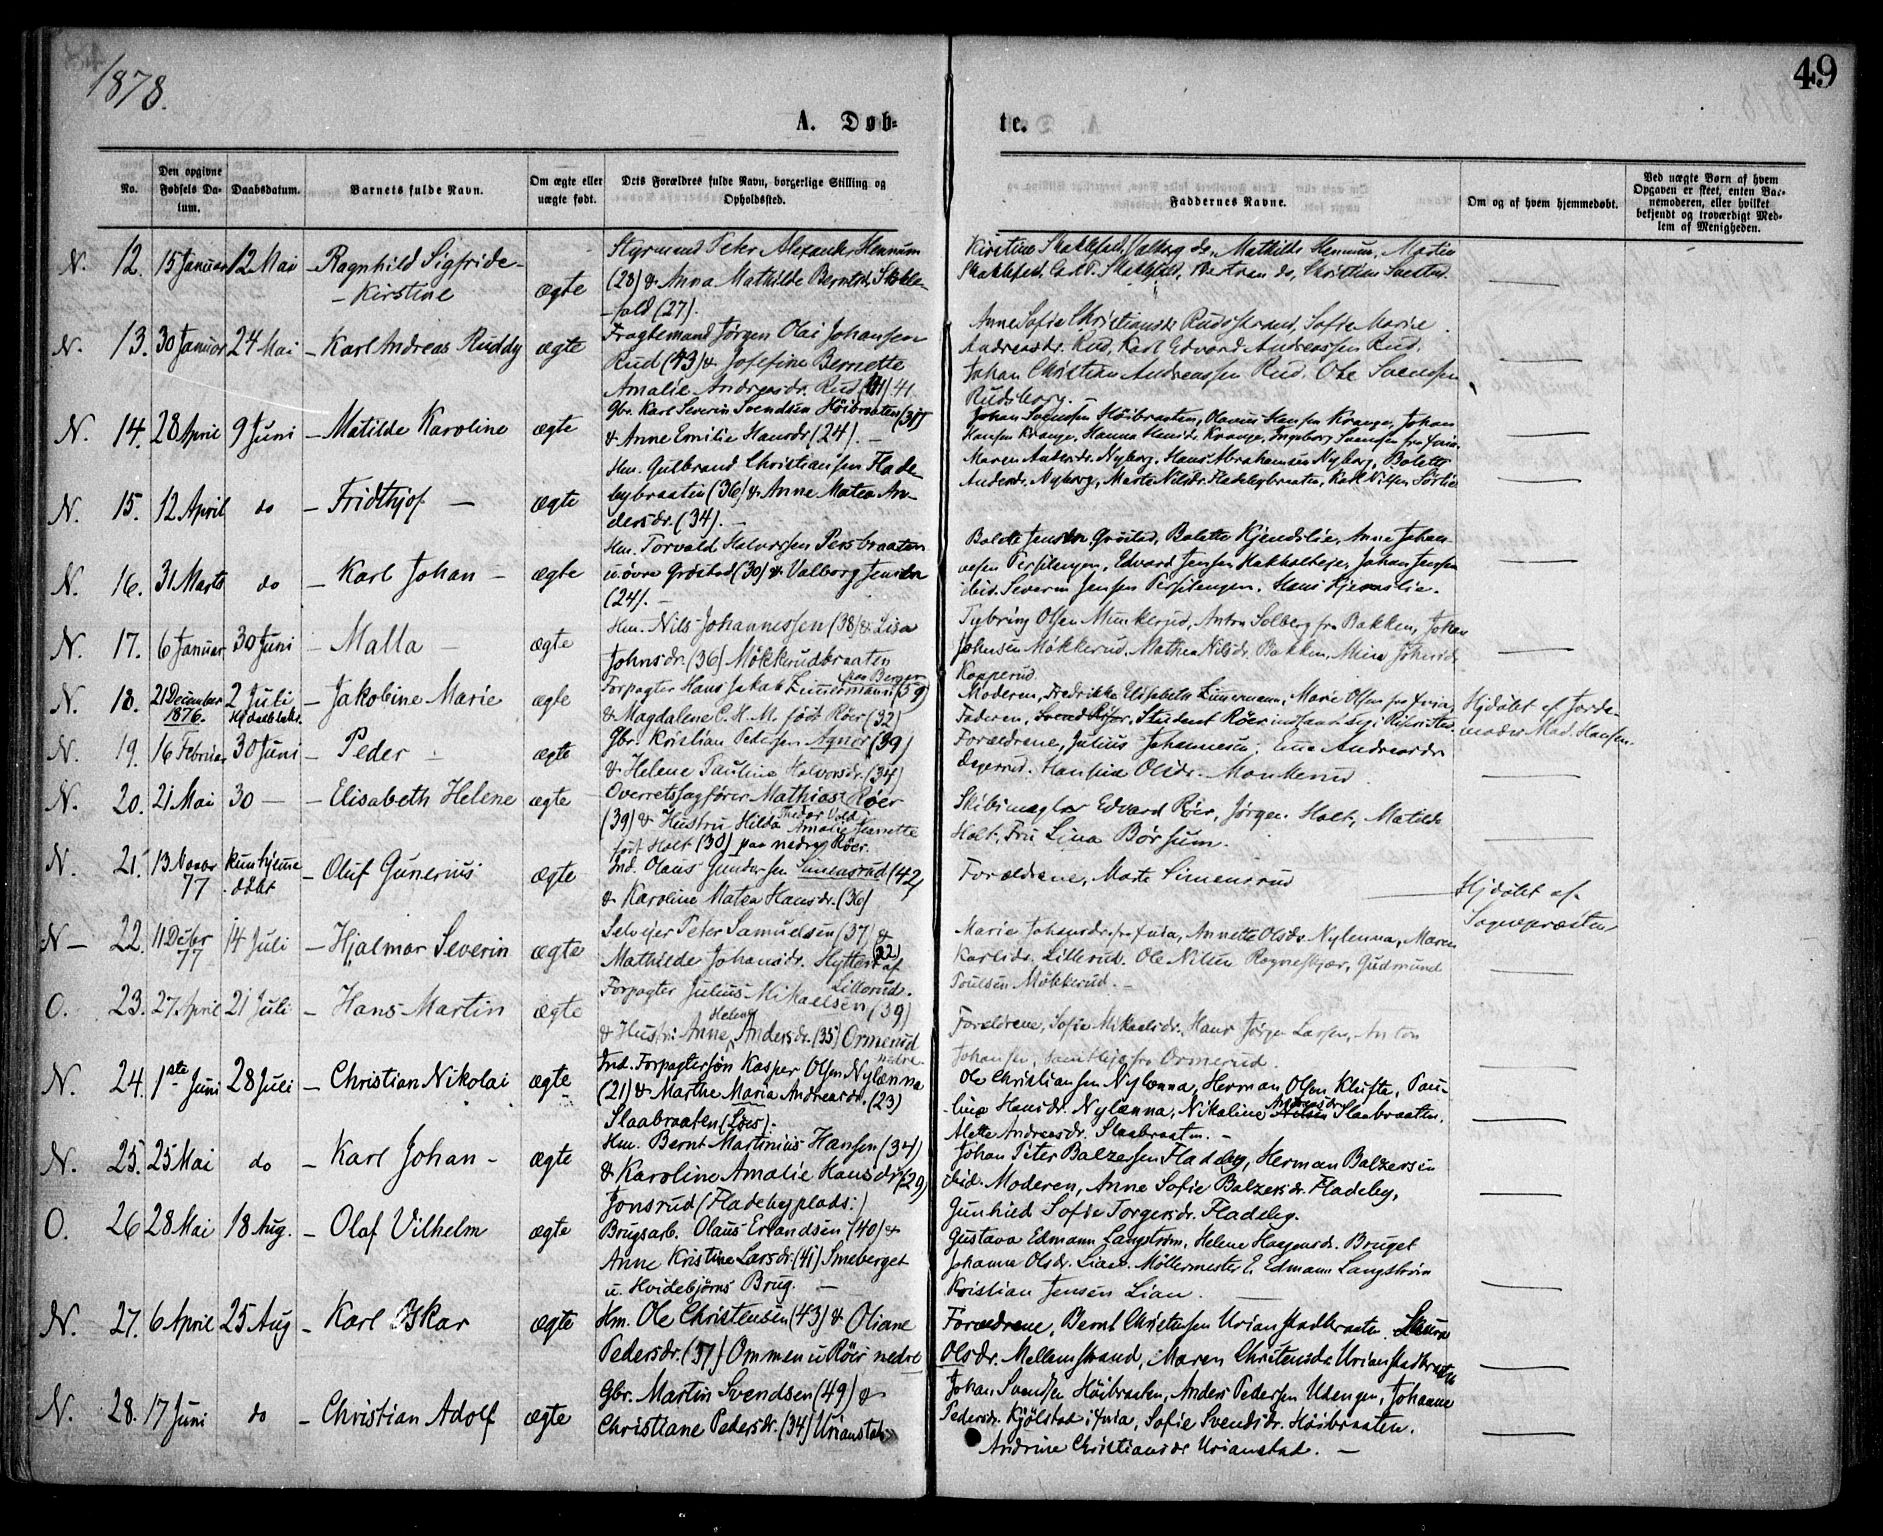 1878.
49
A. Døb-
te.
No.
Den opgivne Fødsels Da-tum.
Daabsdatum.
Barnets fulde Navn.
Om ægte eller uægte født.
Dets Forældres fulde Navn, borgerlige Stilling og Opholdssted.
Faddernes Navne.
Om og af hvem hjemmedøbt.
Ved uægte Børn af hvem Opgaven er skeet, enten Bar-nemoderen, eller hvilket bekjendt og troværdigt Med-lem af Menigheden.
N. 12. 15 Januar 12 Mai – Ragnhild Sigfride –
– Kirstine ægte
Styrmand Peter Alexander Hennum
(28) & Anna Mathilde Berntdr.
(27).
Mathilde Hennum, Martin
N. 13. 30 Januar 24 Mai – Karl Andreas Ruddy ægte
Fragtemand Jørgen Olai Johansen
Rud (43) & Josefine Bernette
Amalie Andreasdr. Rud 41.
Anne Sofie Christiansdr Rudstrand, Sofie Marie
Andreasdr. Rud, Karl Edvard Andreassen Rud.
Johan Christian Andreassen Rud. Ole Svendsen
Rudsborg. –
N. 14. 28 April 9 Juni – Matilde Karoline ægte
Gbr. Karl Severin Svendsen Høibraaten (31)
& Anne Emilie Hansdr (24). –
Johan Svendsen Høibraaten, Olavus Hansen Krange, Johan
Hansen Krange, Hanna Hansdr. Krange, Ingeborg Svendsen
N. 15. 12 April do – Fridthjof – ægte
Hm. Gulbrand Christiansen Flade-
bybraaten (36) & Anne Matea An-
dersdr. (34). –
Maren Andersdr. Nyborg, Hans Abrahamsen Nyborg, Bolette
Andersdr. Nyborg, Marte Nilsdr. Fladebybraaten, Karl Nilsen Sørlie
N. 16. 31 Marts do – Karl Johan – ægte
Hm. Torvald Halvorsen Persbraaten
u. øvre Grøstad (30) & Valborg Jensdr
(24). –
Bolette Jensdr Grøstad, Bolette Kjendslie, Anne Johan-
Edvard Jensen Johan Jensen
ibid. Severin Jensen Hans
N. 17. 6 Januar 30 Juni – Malla – ægte
Hm. Nils Johannessen (38) & Lisa
Johnsdr. (36) Møkkerudbraaten
Tybring Olsen Munkerud, Anton Solberg fra Bakken, Johan
Johnsen Møkkerud, Mathea Nilsdr. Bakken, Mina Johnsdr
Kopperud.
N. 18. 21 December 1876. 2 Juli – Jakobine Marie ægte
Forpagter Hans Jakob Zimmermann paa Berger (59)
& Magdalene C. H. M. født Røer (32)
Moderen, Fredrikke Elisabeth Zimmermann, Marie Olsen
Faderen, Student Røer
Hjdøbt af Jorde-
moder Mad. Hansen.
N. 19. 16 Februar 30 Juni – Peder – ægte
Gbr. Kristian Pedersen Agnor (39)
& Helene Paulina Halvorsdr. (34)
Forældrene, Julius Johannesen, Andreasdr
Dagerud. Hansine Olsdr. Monkerud.
N. 20. 21 Mai 30 – – Elisabeth Helene ægte
Overretssagfører Mathias Røer
(39) & Hustru Hilda Amalie Jeanette
født Holt (30) paa nedre Røer.
Skibsmægler Edvard Røer, Jørgen Holt, Matilde
Holt, Fru Lina Børsum.
N. 21. 13 Novbr 77 kun hjemme-døbt. – Oluf Gunerius ægte
Ind. Olaus Gundersen Simensrud (42)
& Karoline Matea Hansdr. (36)
Forældrene, Marte Simensrud
Hjdøbt af
Sognepræsten
N – 22. 11 Decbr 77 14 Juli – Hjalmar Severin ægte
Selveier Peter Samuelsen (37) &
Mathilde Johansdr. (22) af
Litterud.
Marie Johansdr. Annette Olsdr Nylenna, Maren
Karlsdr. Litterud. Ole Nilsen Gudmund
Poulsen Møkkerud. –
O. 23. 27 April 21 Juli – Hans Martin ægte
Forpagter Julius Mikaelsen (39)
& Hustru Anne Helene Andersdr. (35) Ormerud
nedre
Forældrene, Sofie Mikaelsdr. Hans Jørgen Larsen, Anton
Johansen, samtlige fra Ormerud.
N. 24. 1ste Juni 28 Juli – Christian Nikolai ægte
Ind. Forpagtersøn Kasper Olsen Nylænna
(21) & Marthe Maria Andreasdr. (23)
Slaabraaten (Løes).
Ole Christiansen Nylænna, Herman Olsen Klufta, Pau-
line Hansdr. Nylænna, Nikoline Andreasdr Slaabraaten,
Alette Andreasdr. Slaabraaten. –
N. 25. 25 Mai do – Karl Johan – ægte
Hm. Bernt Martinius Hansen (34)
& Karoline Amalie Hansdr (29)
Jonsrud (Fladebyplads.)
Johan Peter Balzersen Fladeby, Herman Balzersen
ibid. Moderen, Anne Sofie Balzersdr. Fladeby,
Gunhild Sofie Torgersdr. Fladeby.
O. 26 28 Mai 18 Aug. – Olaf Vilhelm ægte
Brugsarb. Olaus Erlandsen (40) &
Anne Kristine Larsdr. (41) Smeberget
u. Hvidebjørns Brug. –
Gustava Edmann Langstrøm, Helene Haagensdr. Bruget
Johanna Olsdr. Lian. Møllermester E. Edmann Langstrøm
Kristian Jensen Lian.
N. 27. 6 April 25 Aug – Karl Oskar ægte
Hm. Ole Christensen (43) & Oliane
Pedersdr. (37) Ommen u Røer nedre
Forældrene, Bernt Christensen Urianstadbraaten.
Olsdr. Mellemstrand, Maren Christensdr Urianstadbraaten
N. 28. 17 Juni do – Christian Adolf ægte
Gbr. Martin Svendsen (49) &
Christiane Pedersdr. (34) Urianstad
Johan Svendsen Høibraaten, Anders Pedersen Udengen, Johanne
Pedersdr. Kjølstad Sofie Svendsdr. Høibraaten.
Andrine Christiansdr Urianstad. –